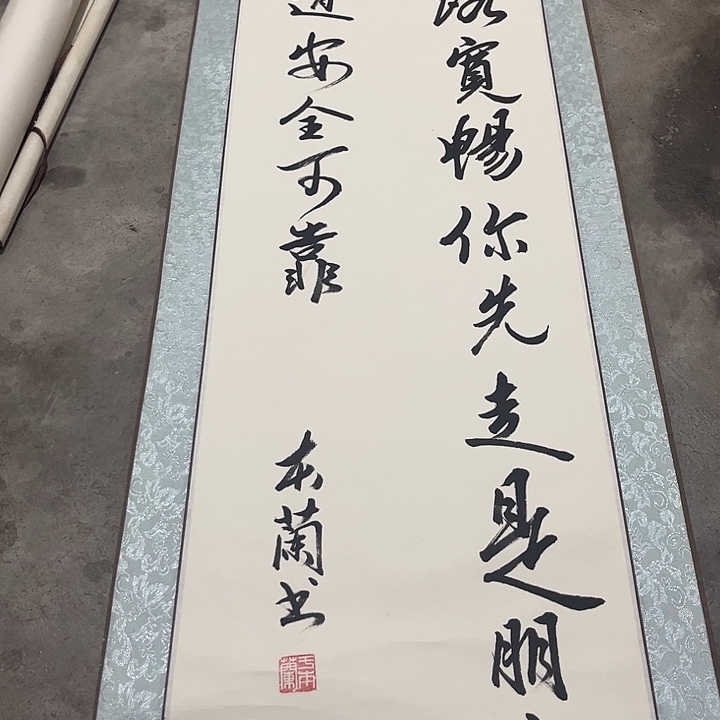 路寬暢你先走是朋
道安全可靠
本蘭书